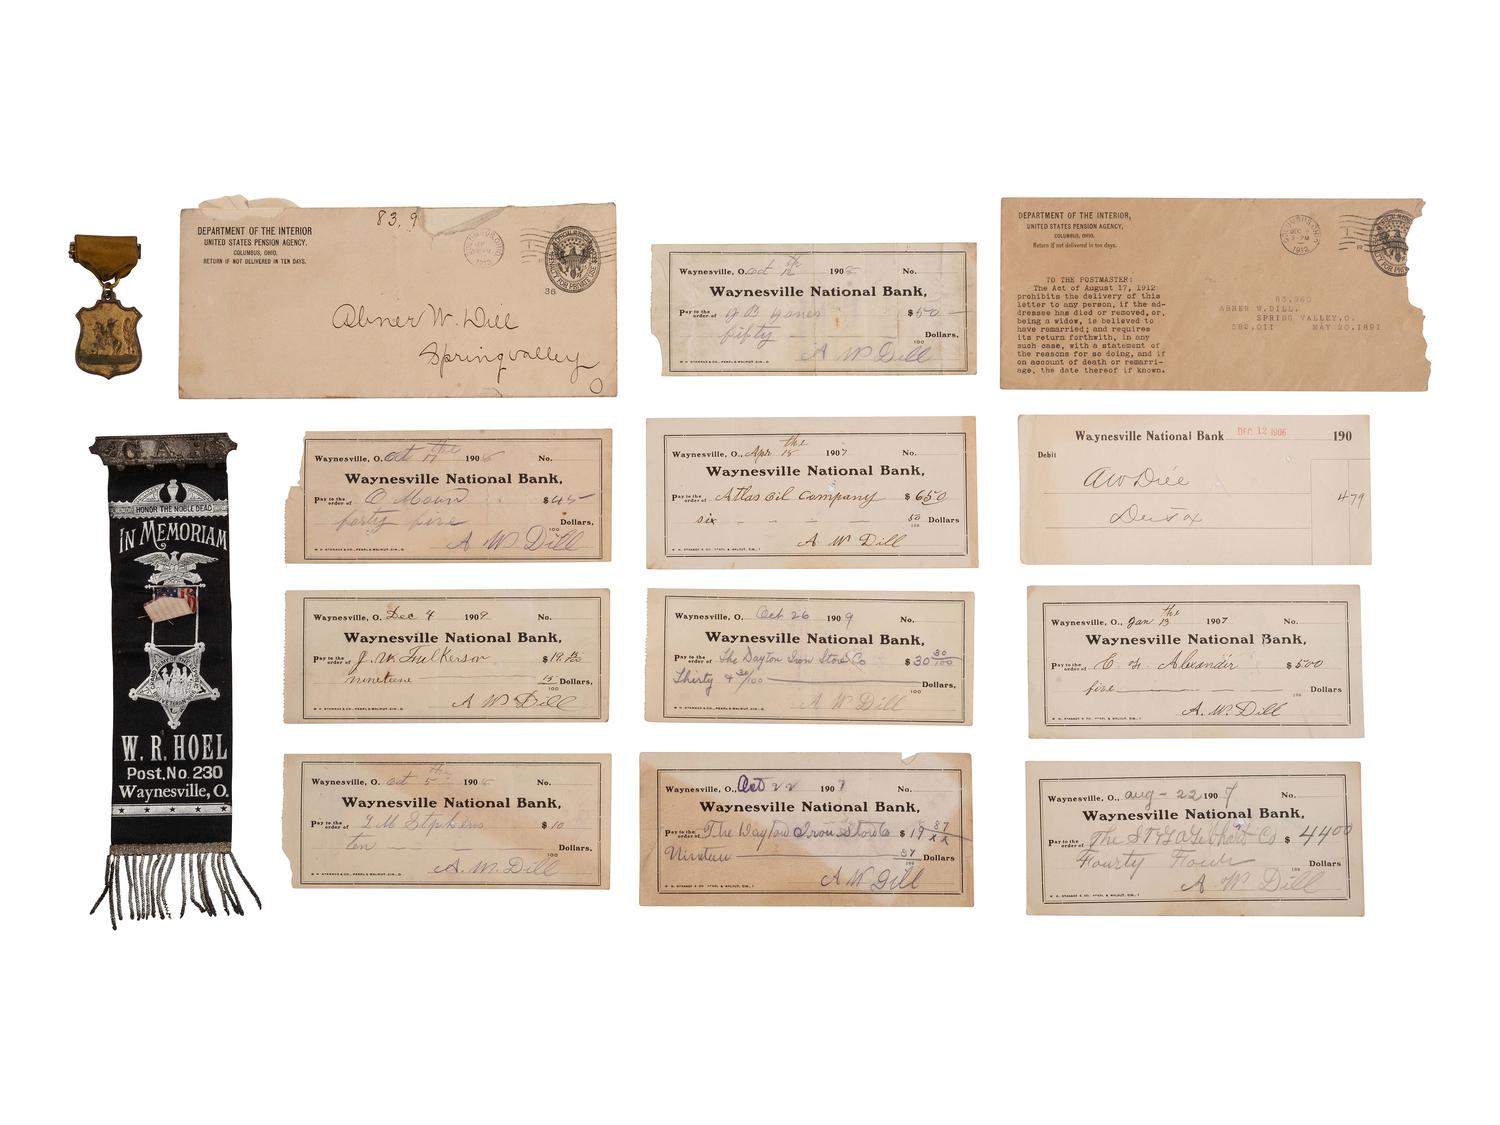 83,9
DEPARTMENT OF THE INTERIOR
UNITED STATES PENSION AGENCY.
COLUMBUS, OHIO.
RETURN IF NOT DELIVERED IN TEN DAYS.
1912
36
Abner W. Dill
Springvalley
O
Waynesville, O. Oct 1908 No.
Waynesville National Bank,
Pay to the order of J B Jones $50
fifty Dollars,
100
A W Dill
DEPARTMENT OF THE INTERIOR,
UNITED STATES PENSION AGENCY,
COLUMBUS, OHIO.
Return if not delivered in ten days.
1912
TO THE POSTMASTER:
The Act of August 17, 1912
prohibits the delivery of this
letter to any person, if the ad-
dressee has died or removed, or,
being a widow, is believed to
have remarried; and requires
its return forthwith, in any
such case, with a statement of
the reasons for so doing, and if
on account of death or remarri-
age, the date thereof if known.
ABNER W. DILL,
SPRING VALLEY, O.
582,011 MAY 20, 1891
G.A.R.
HONOR THE NOBLE DEAD
IN MEMORIAM
W. R. HOEL
Post. No. 230
Waynesville, O.
Waynesville, O. Oct 17 the 190 No.
Waynesville National Bank,
Pay to the order of $45
forty five Dollars,
100
A W Dill
Waynesville, O., Apr 18 the 1907 No.
Waynesville National Bank,
Pay to the order of Atlas Oil Company $650
six 50 Dollars
100
A W Dill
Waynesville National Bank DEC 12 1906 190
Debit
479
Waynesville, O. Dec 4 1909 No.
Waynesville National Bank,
Pay to the order of J. W. Fulkerson $19
nineteen 15 Dollars,
100
A W Dill
Waynesville, O. Oct 26 1909 No.
Waynesville National Bank,
Pay to the order of The Dayton Iron Store Co $30 30/100
Thirty & 30/100 Dollars,
100
A W Dill
Waynesville, O., Jan 13 the 1907 No.
Waynesville National Bank,
Pay to the order of Alexander $500
five Dollars
100
A. W. Dill
Waynesville, O. Oct 5 the 190 No.
Waynesville National Bank,
Pay to the order of Stphens $10
ten Dollars,
100
A. W. Dill
Waynesville, O., Oct 22 1907 No.
Waynesville National Bank,
Pay to the order of The Dayton Iron Store Co $19 87/xx
Nineteen 87 Dollars
100
A W Dill
Waynesville, O., aug - 22 1907 No.
Waynesville National Bank,
Pay to the order of The Co $4400
Fourty Four Dollars
100
A W Dill